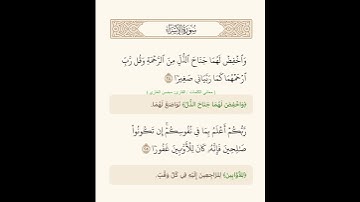 سُورَةُ الإِسْرَاءِ
وَٱخْفِضْ لَهُمَا جَنَاحَ ٱلذُّلِّ مِنَ ٱلرَّحْمَةِ وَقُل رَّبِّ
ٱرْحَمْهُمَا كَمَا رَبَّيَانِي صَغِيرًا ۝٢٤
﴿وَٱخْفِضْ لَهُمَا جَنَاحَ ٱلذُّلِّ﴾ تَوَاضَعْ لَهُمَا.
رَّبُّكُمْ أَعْلَمُ بِمَا فِي نُفُوسِكُمْ إِن تَكُونُوا۟
صَٰلِحِينَ فَإِنَّهُۥ كَانَ لِلْأَوَّٰبِينَ غَفُورًا ۝٢٥
﴿لِلْأَوَّٰبِينَ﴾ لِلرَّاجِعِينَ إِلَيْهِ فِي كُلِّ وَقْتٍ.